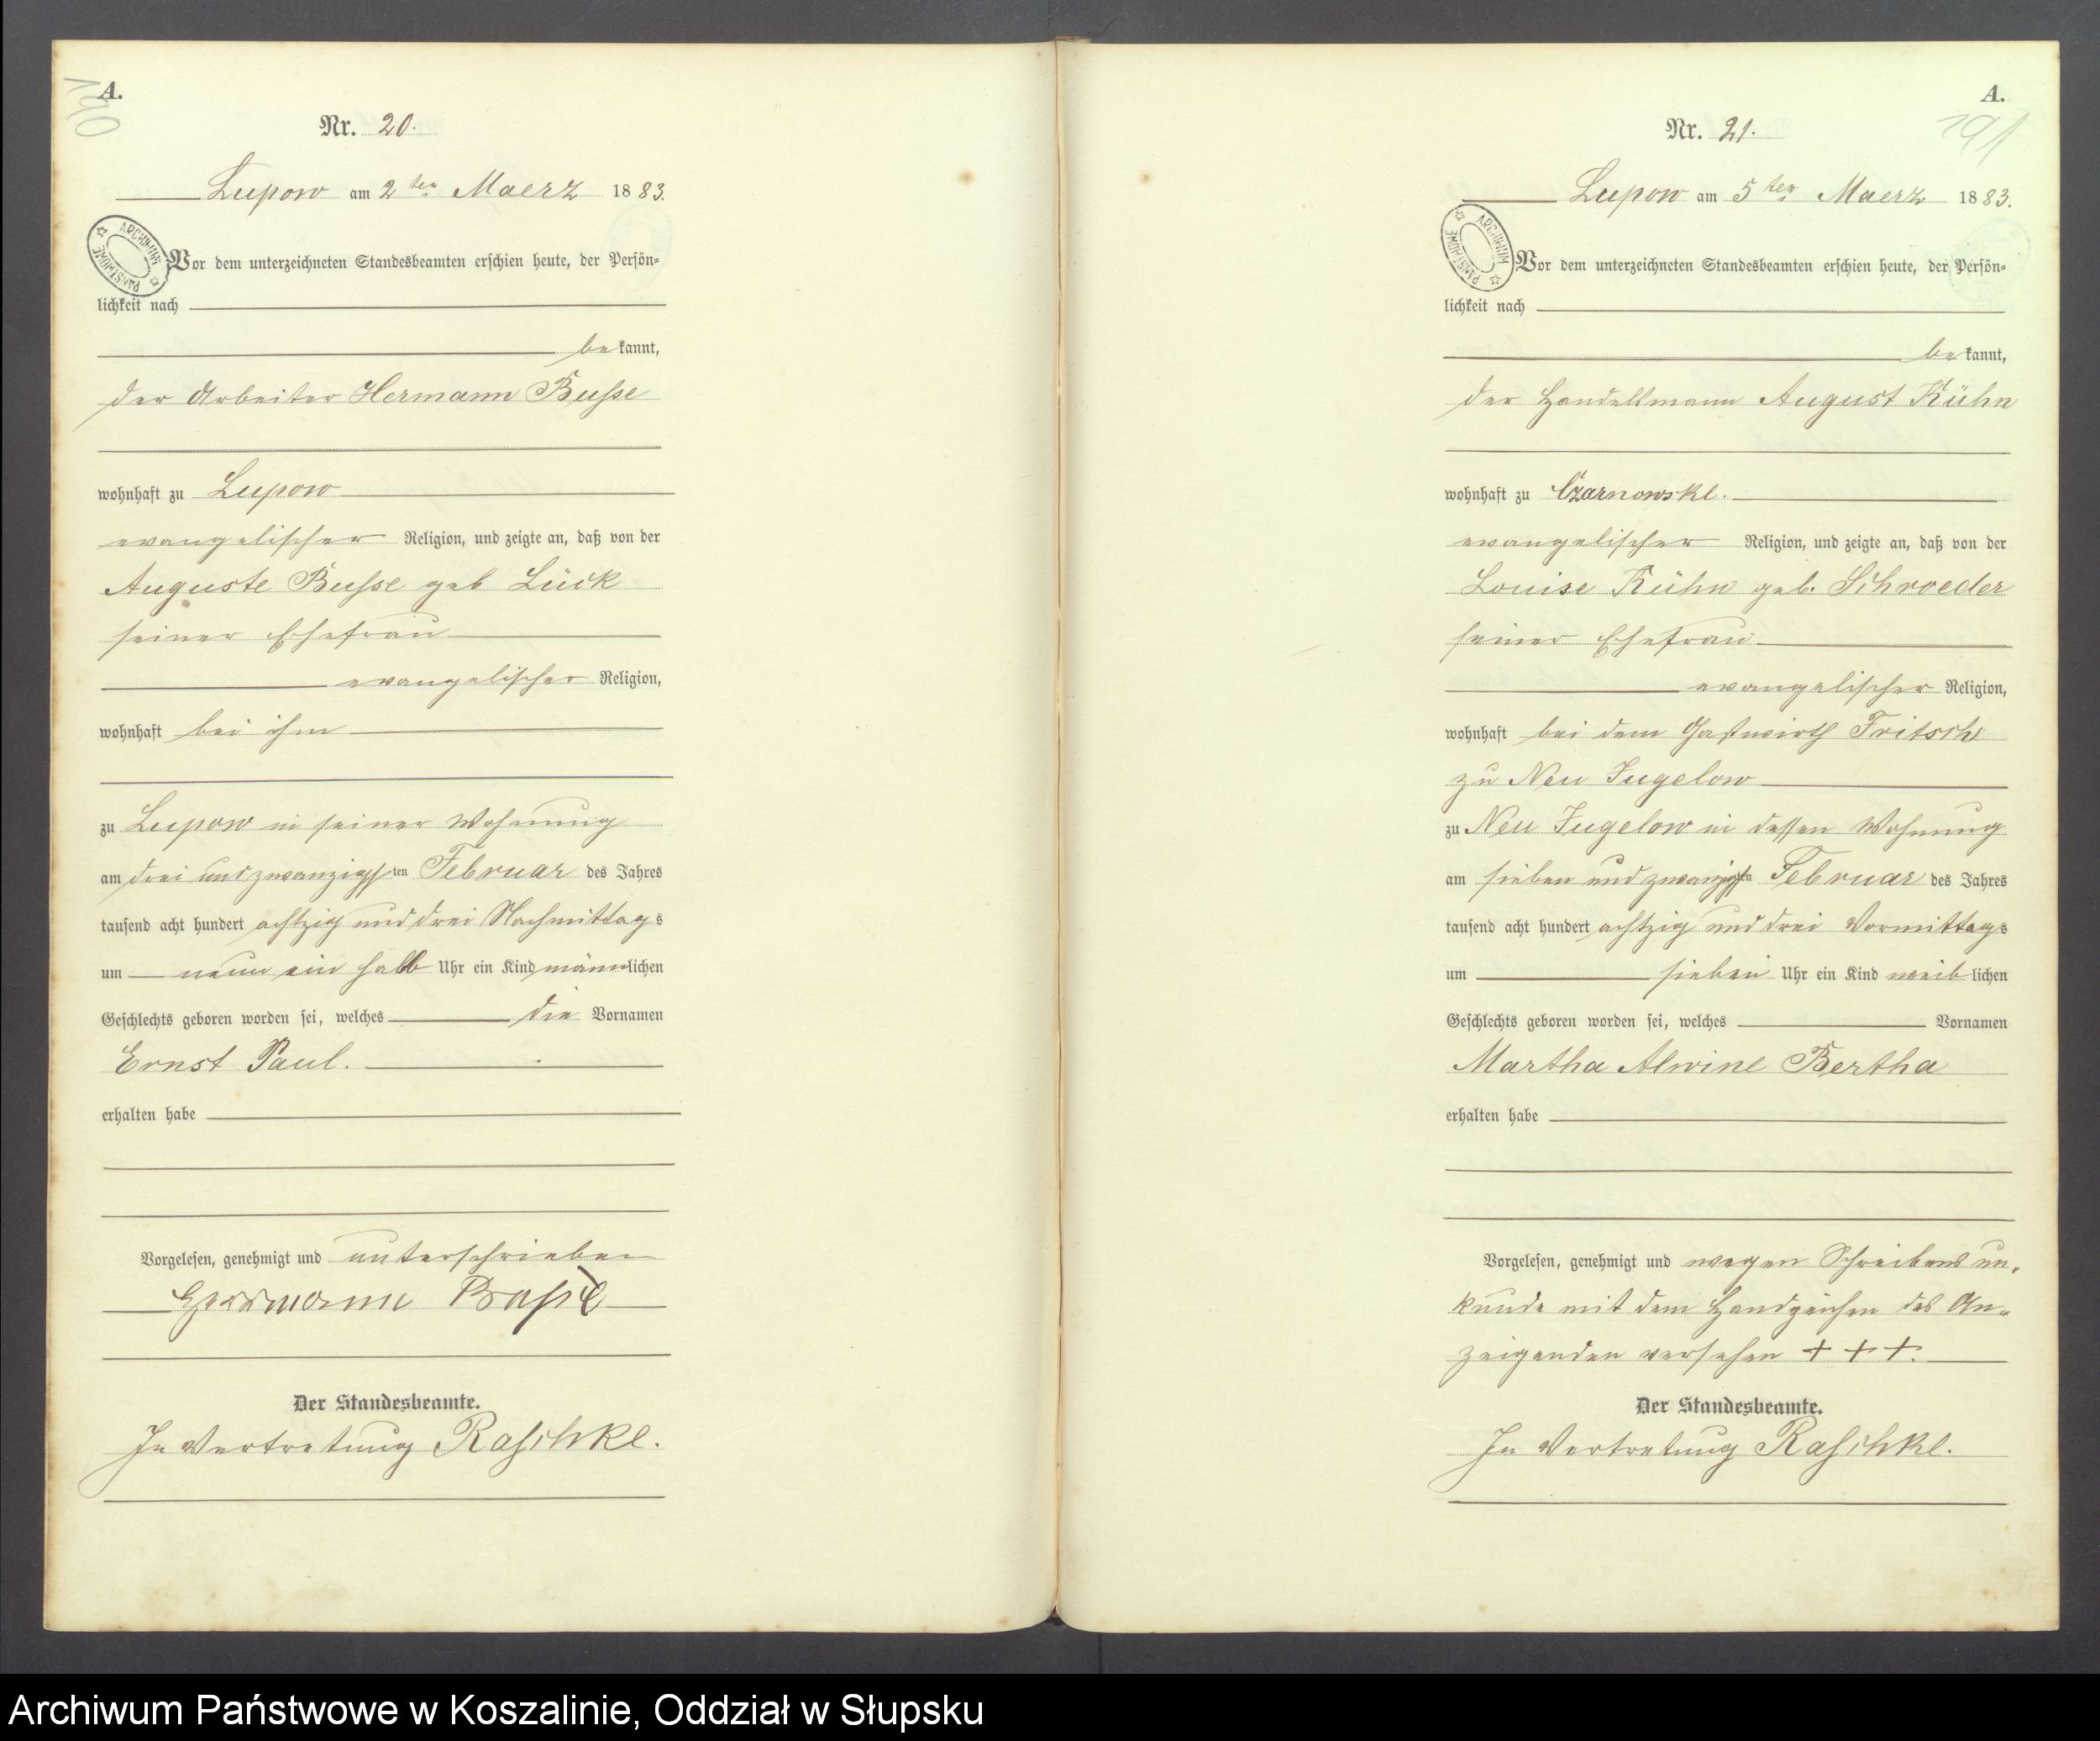 A.
190
Nr. 20.
Lupow am 2ten Maerz 1883.
ARCHIWUM PAŃSTWOWE
Vor dem unterzeichneten Standesbeamten erschien heute, der Persön-
lichkeit nach
bekannt,
der Arbeiter Hermann Busse
wohnhaft zu Lupow
evangelischer Religion, und zeigte an, daß von der
Auguste Busse geb Lück
seiner Ehefrau
evangelischer Religion,
wohnhaft bei ihm
zu Lupow in seiner Wohnung
am drei und zwanzigsten Februar des Jahres
tausend acht hundert achtzig und drei Nachmittags
um neun ein halb Uhr ein Kind männlichen
Geschlechts geboren worden sei, welches die Vornamen
Ernst Paul.
erhalten habe
Vorgelesen, genehmigt und unterschrieben
Herrmann Busse
Der Standesbeamte.
In Vertretung Raschke.
A.
191
Nr. 21.
Lupow am 5ten Maerz 1883.
ARCHIWUM PAŃSTWOWE
Vor dem unterzeichneten Standesbeamten erschien heute, der Persön-
lichkeit nach
bekannt,
der Handelsmann August Kühn
wohnhaft zu Czarnowske.
evangelischer Religion, und zeigte an, daß von der
Louise Kühn geb. Schroeder
seiner Ehefrau
evangelischer Religion,
wohnhaft bei dem Gastwirth Fritsch
zu Neu Jugelow
zu Neu Jugelow in dessen Wohnung
am sieben und zwanzigsten Februar des Jahres
tausend acht hundert achtzig und drei Vormittags
um sieben Uhr ein Kind weiblichen
Geschlechts geboren worden sei, welches Vornamen
Martha Alwine Bertha
erhalten habe
Vorgelesen, genehmigt und wegen Schreibens un-
kunde mit dem Handzeichen des An-
zeigenden versehen + + +.
Der Standesbeamte.
In Vertretung Raschke.
Archiwum Państwowe w Koszalinie, Oddział w Słupsku